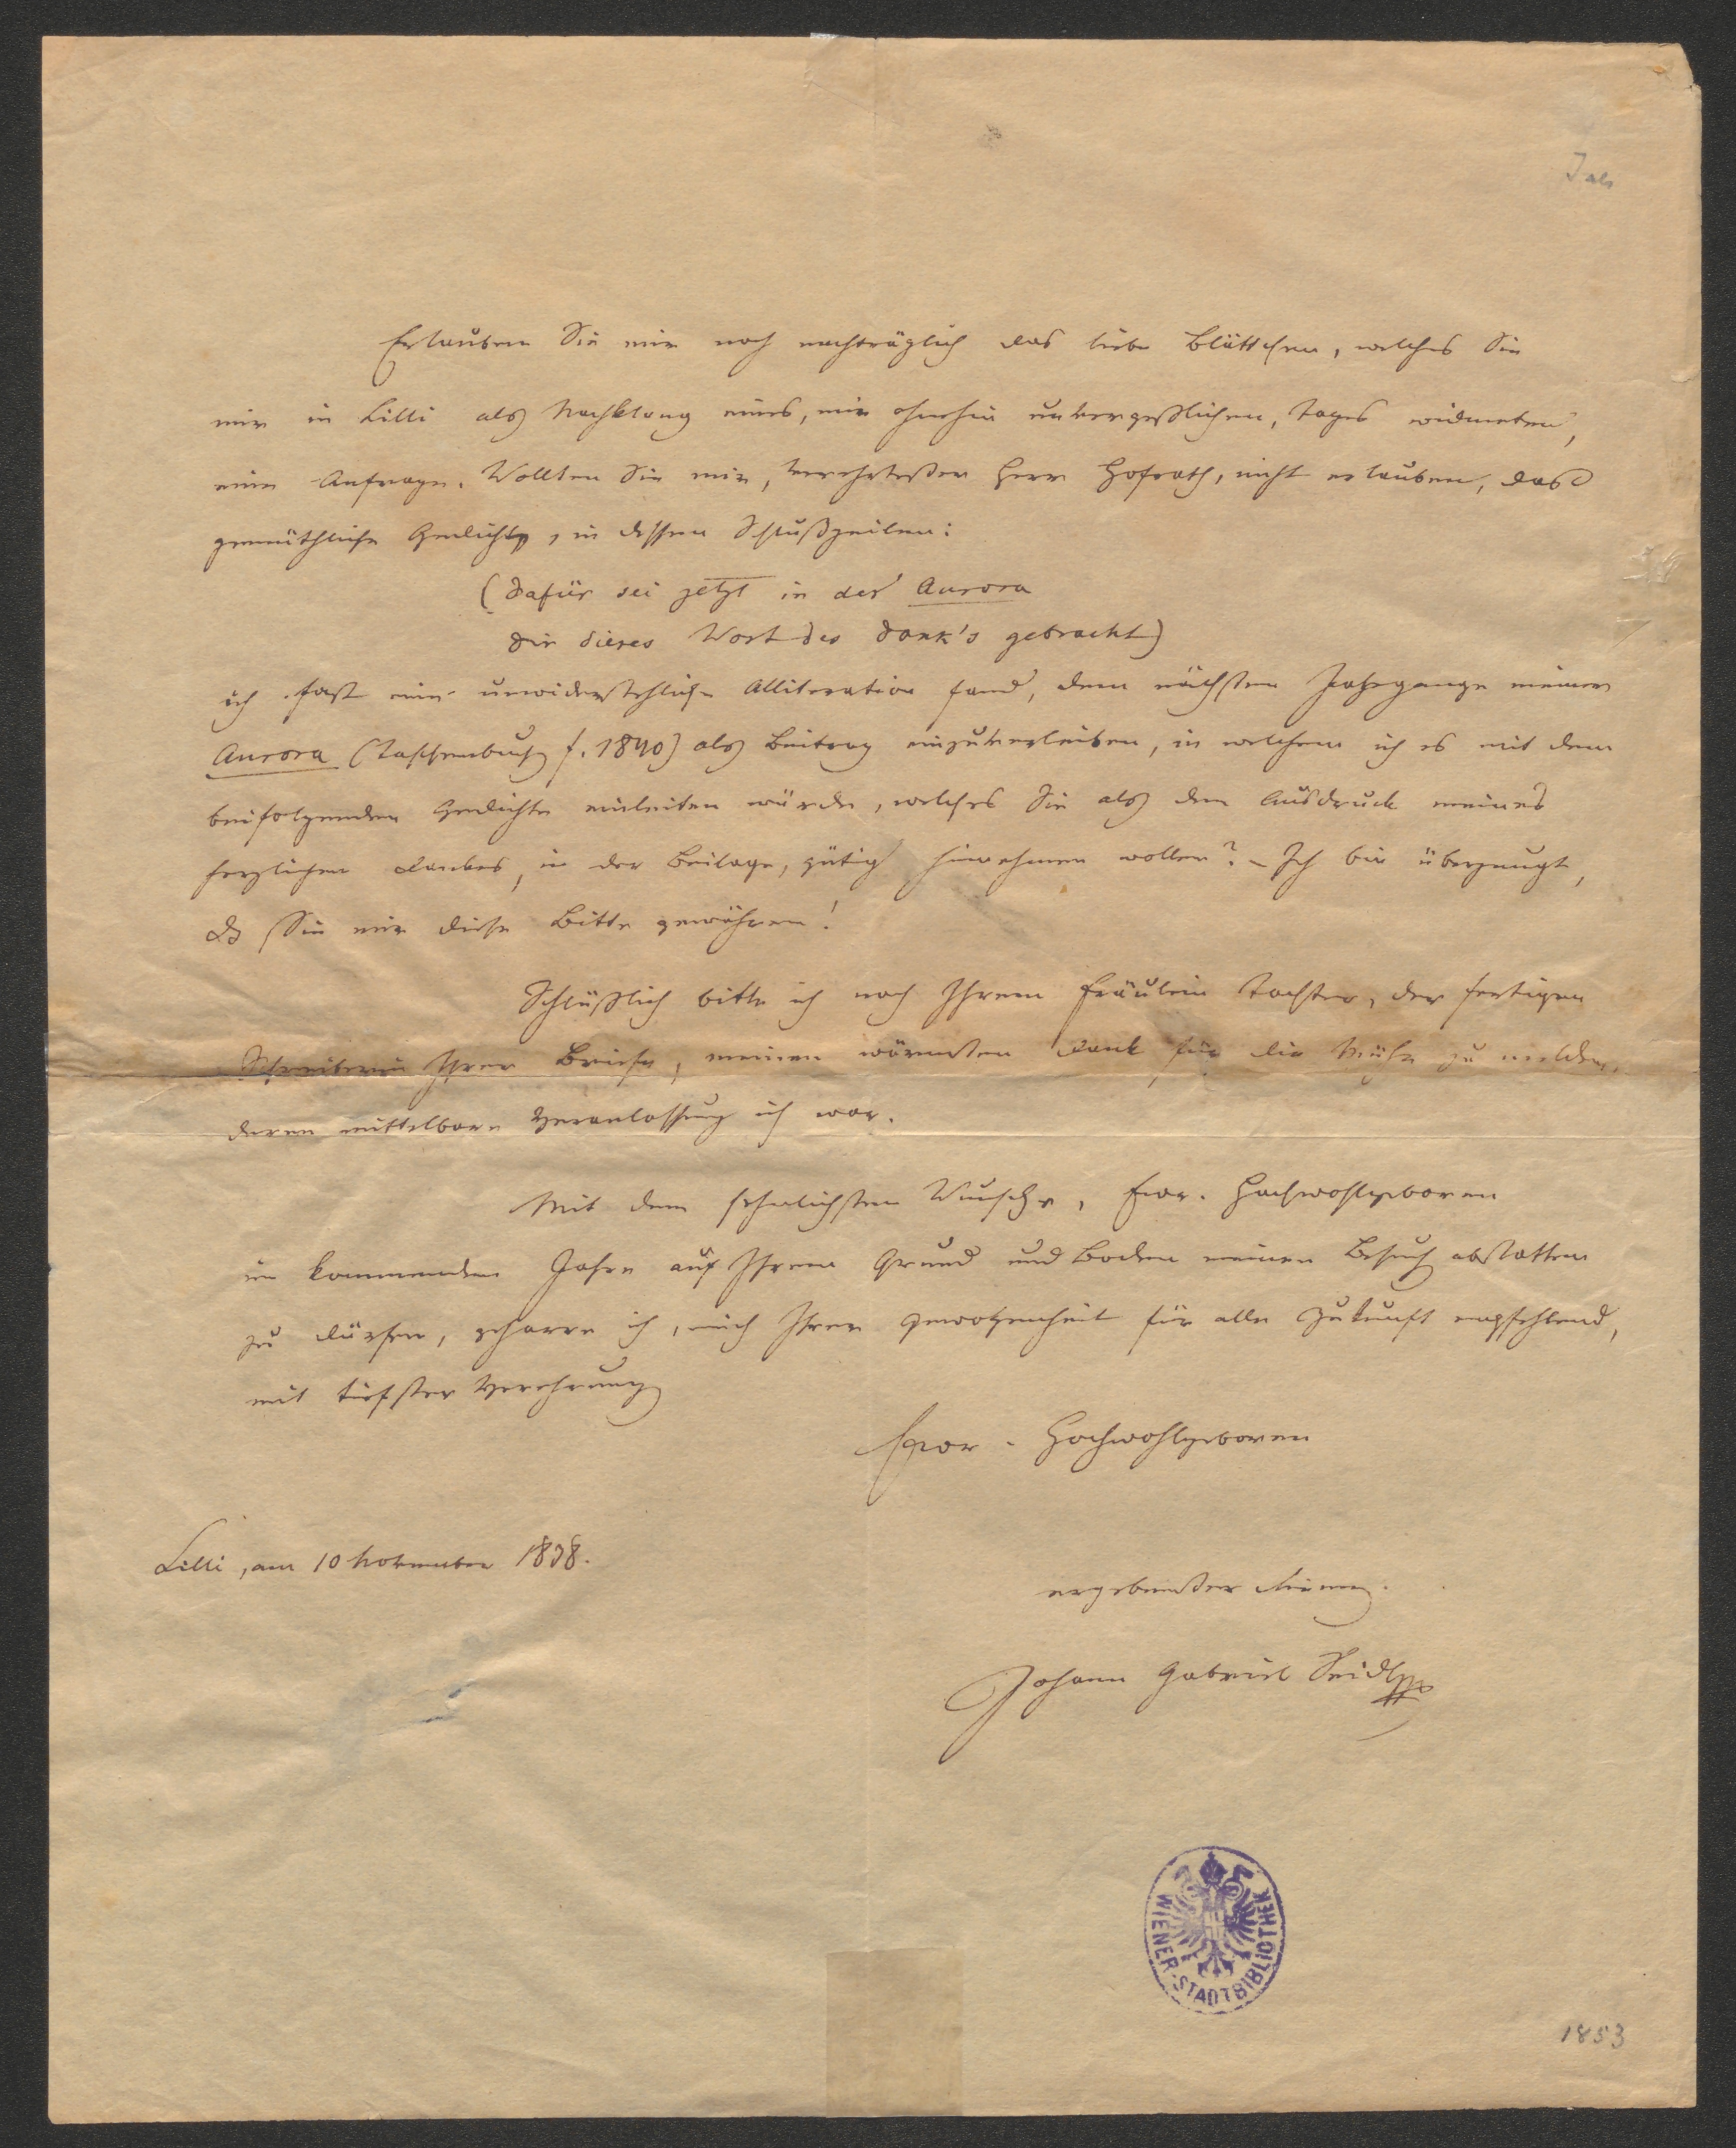 Erlauben Sie mir noch nachträglich das liebe Blättchen, welches Sie
mir in Cilli als Nachklang eines, mir ohnehin unvergeßlichen, Tages widmeten,
eine Anfrage. Wollten Sie mir, verehrtester Herr Hofrath, nicht erlauben, das
gemüthliche Gedicht, in dessen Schlußzeilen:
(Dafür sei jetzt in der Aurora
Dir dieses Wort des Dank's gebracht)
ich fast eine unwiderstehliche Alliteration fand, dem nächsten Jahrgange meiner
Aurora (Taschenbuch f. 1840) als Beitrag einzuverleiben, in welchem ich es mit dem
beifolgenden Gedichte einleiten würde, welches Sie als den Ausdruck meines
herzlichen Dankes, in der Beilage, gütig hinnehmen wollen? – Ich bin überzeugt,
daß Sie mir diese Bitte gewähren!
Schlüßlich bitte ich noch Ihrem Fräulein Tochter, der fertigen
Schreiberin Ihrer Briefe, meinen wärmsten Dank für die Mühe zu melden,
deren mittelbare Veranlassung ich war.
Mit dem sehnlichsten Wunsche, Euer. Hochwohlgeboren
im kommenden Jahre auf Ihrem Grund und Boden meinen Besuch abstatten
zu dürfen, geharre ich, mich Ihrer Gewogenheit für alle Zukunft empfehlend,
mit tiefster Verehrung
Euer. Hochwohlgeboren
Cilli, am 10 November 1838.
ergebenster Diener.
Johann Gabriel Seidl
WIENER-STADTBIBLIOTHEK
1853